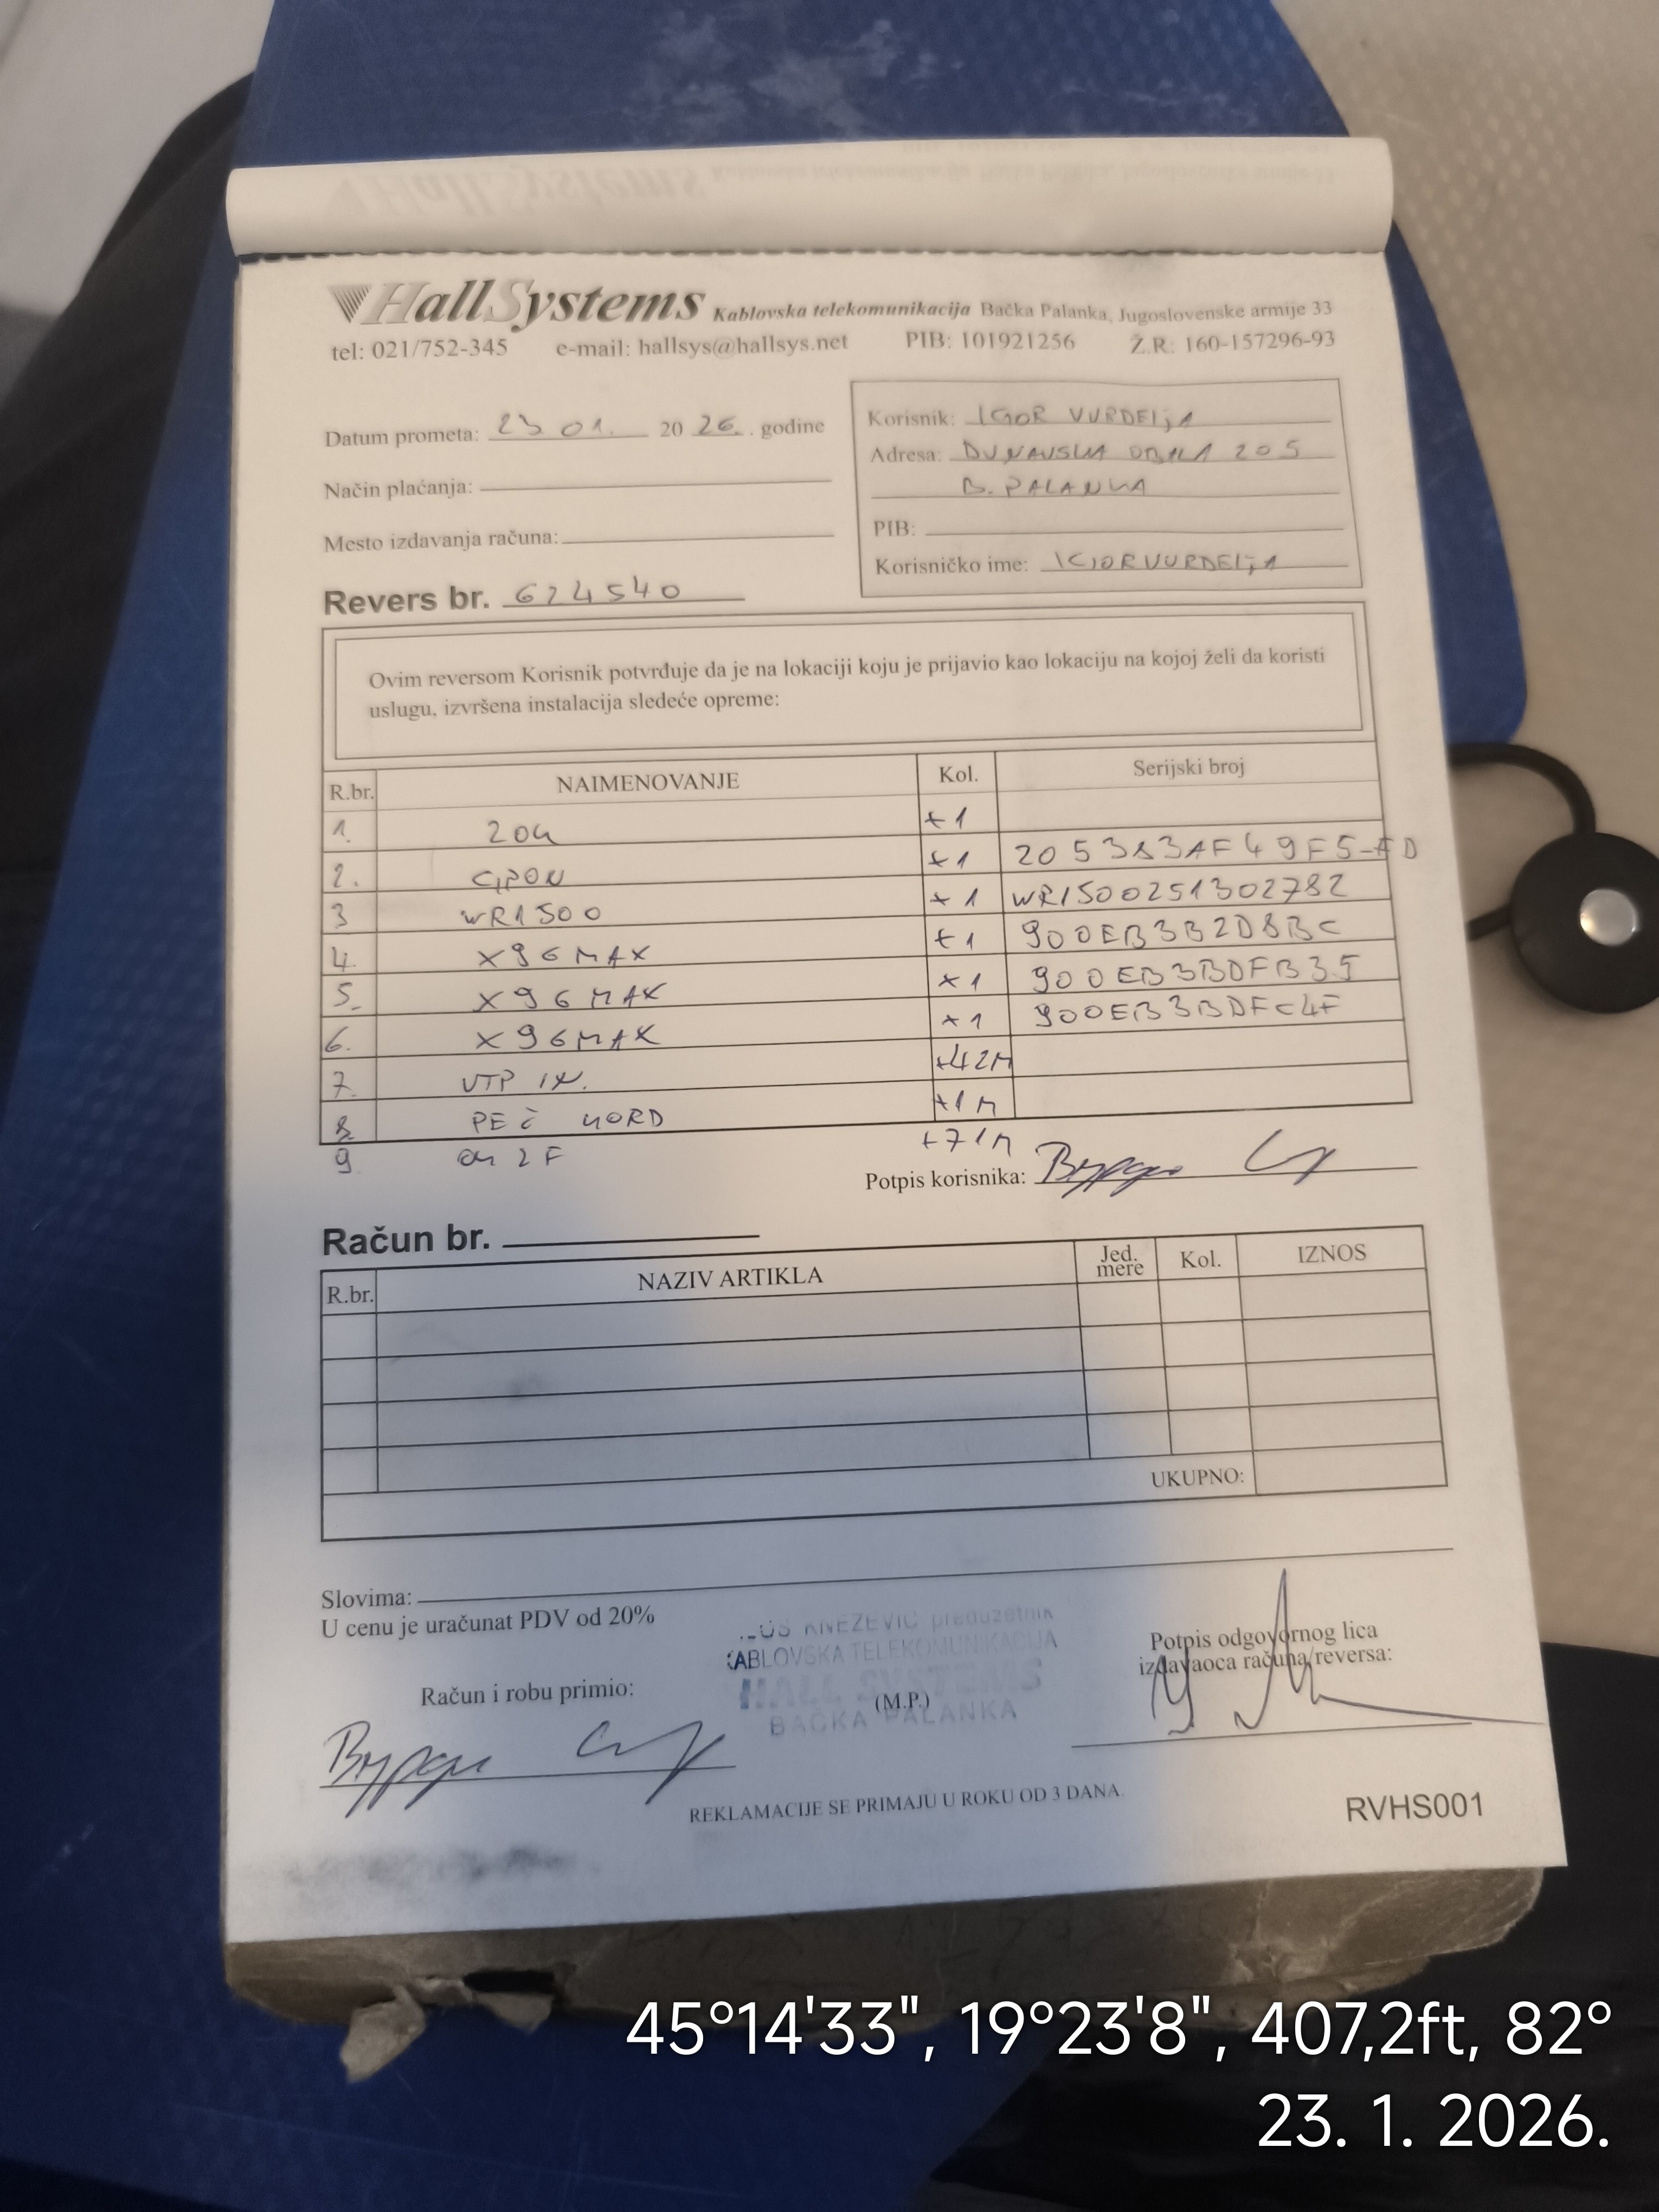 HallSystems Kablovska telekomunikacija Bačka Palanka, Jugoslovenske armije 33
tel: 021/752-345 e-mail: hallsys@hallsys.net PIB: 101921256 Ž.R: 160-157296-93
Datum prometa: 23 01. 20 26. godine
Način plaćanja:
Mesto izdavanja računa:
Korisnik: IGOR VURDELjA
Adresa: DUNAVSKA OBALA 205
B. PALANKA
PIB:
Korisničko ime: IGORVURDELjA
Revers br. 624540
Ovim reversom Korisnik potvrđuje da je na lokaciji koju je prijavio kao lokaciju na kojoj želi da koristi
uslugu, izvršena instalacija sledeće opreme:
R.br. NAIMENOVANJE Kol. Serijski broj
1. +1
2. GPON +1 205383AF49F5-FD
3 WR1500 +1 WR1500251302782
4. X96MAX +1 900EB3B2D8BC
5. X96MAX +1 900EB3BDFB35
6. X96MAX +1 900EB3BDFC4F
7. UTP +42M
8. KORD +1M
9. 2F +71M
Potpis korisnika:
Račun br.
R.br. NAZIV ARTIKLA Jed. mere Kol. IZNOS
UKUPNO:
Slovima:
U cenu je uračunat PDV od 20%
KNEZEVIC preduzetnik
KABLOVSKA TELEKOMUNIKACIJA
HALL SYSTEMS
(M.P.)
BAČKA PALANKA
Potpis odgovornog lica
izdavaoca računa/reversa:
Račun i robu primio:
REKLAMACIJE SE PRIMAJU U ROKU OD 3 DANA.
RVHS001
45°14'33", 19°23'8", 407,2ft, 82°
23. 1. 2026.